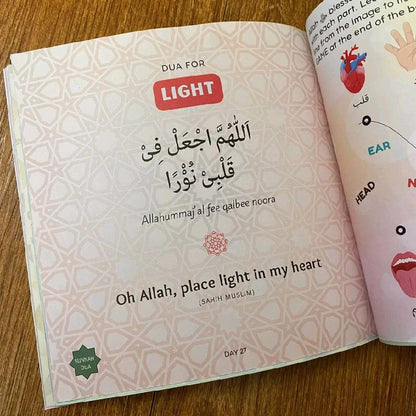 DUA FOR
LIGHT
اَللّٰهُمَّ اجْعَلْ فِيْ
قَلْبِيْ نُوْرًا
Allahummaj'al fee qalbee noora
Oh Allah, place light in my heart
(SAHIH MUSLIM)
DAY 27
SUNNAH
each part.
from the image to
at the end of the
قلب
EAR
HEAD